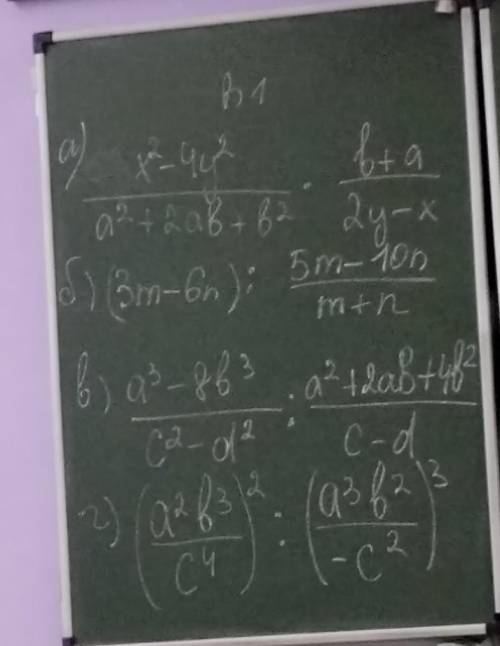 В1
а) (x² - 4y²)/(a² + 2ab + b²) · (b + a)/(2y - x)
б) (3m - 6n) : (5m - 10n)/(m + n)
в) (a³ - 8b³)/(c² - d²) : (a² + 2ab + 4b²)/(c - d)
г) (a²b³/c⁴)² : (a³b²/-c²)³